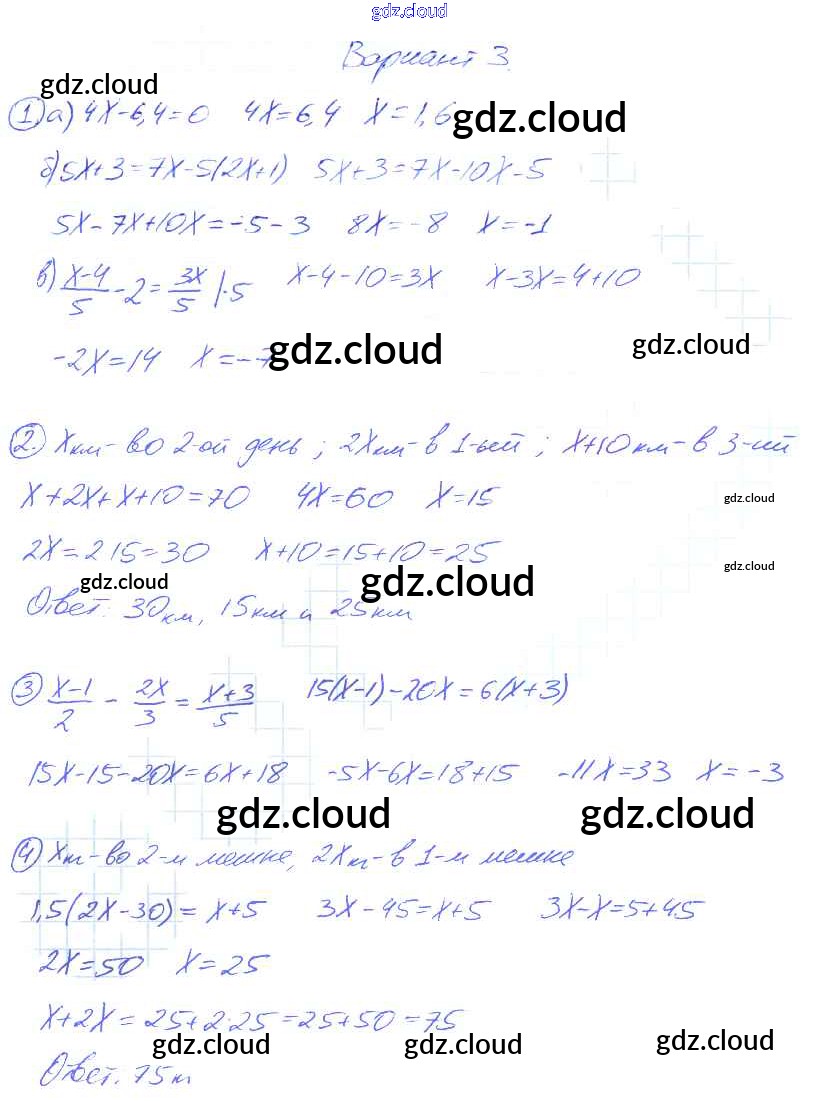 gdz.cloud
Вариант 3.
gdz.cloud
1. а) 4x-6,4=0 4x=6,4 x=1,6 gdz.cloud
б) 5x+3=7x-5(2x+1) 5x+3=7x-10x-5
5x-7x+10x=-5-3 8x=-8 x=-1
в) (x-4)/5 - 2 = 3x/5 |·5 x-4-10=3x x-3x=4+10
-2x=14 x=-7 gdz.cloud gdz.cloud
2. x км - во 2-ой день; 2x км - в 1-ый; x+10 км - в 3-ий
x+2x+x+10=70 4x=60 x=15 gdz.cloud
2x=2·15=30 x+10=15+10=25 gdz.cloud
gdz.cloud gdz.cloud
Ответ: 30 км, 15 км и 25 км
3 (x-1)/2 - 2x/3 = (x+3)/5 15(x-1)-20x=6(x+3)
15x-15-20x=6x+18 -5x-6x=18+15 -11x=33 x=-3
gdz.cloud gdz.cloud
4 x кг - во 2-м мешке, 2x кг - в 1-м мешке
1,5(2x-30)=x+5 3x-45=x+5 3x-x=5+45
2x=50 x=25
x+2x=25+2·25=25+50=75
gdz.cloud gdz.cloud gdz.cloud
Ответ. 75 кг